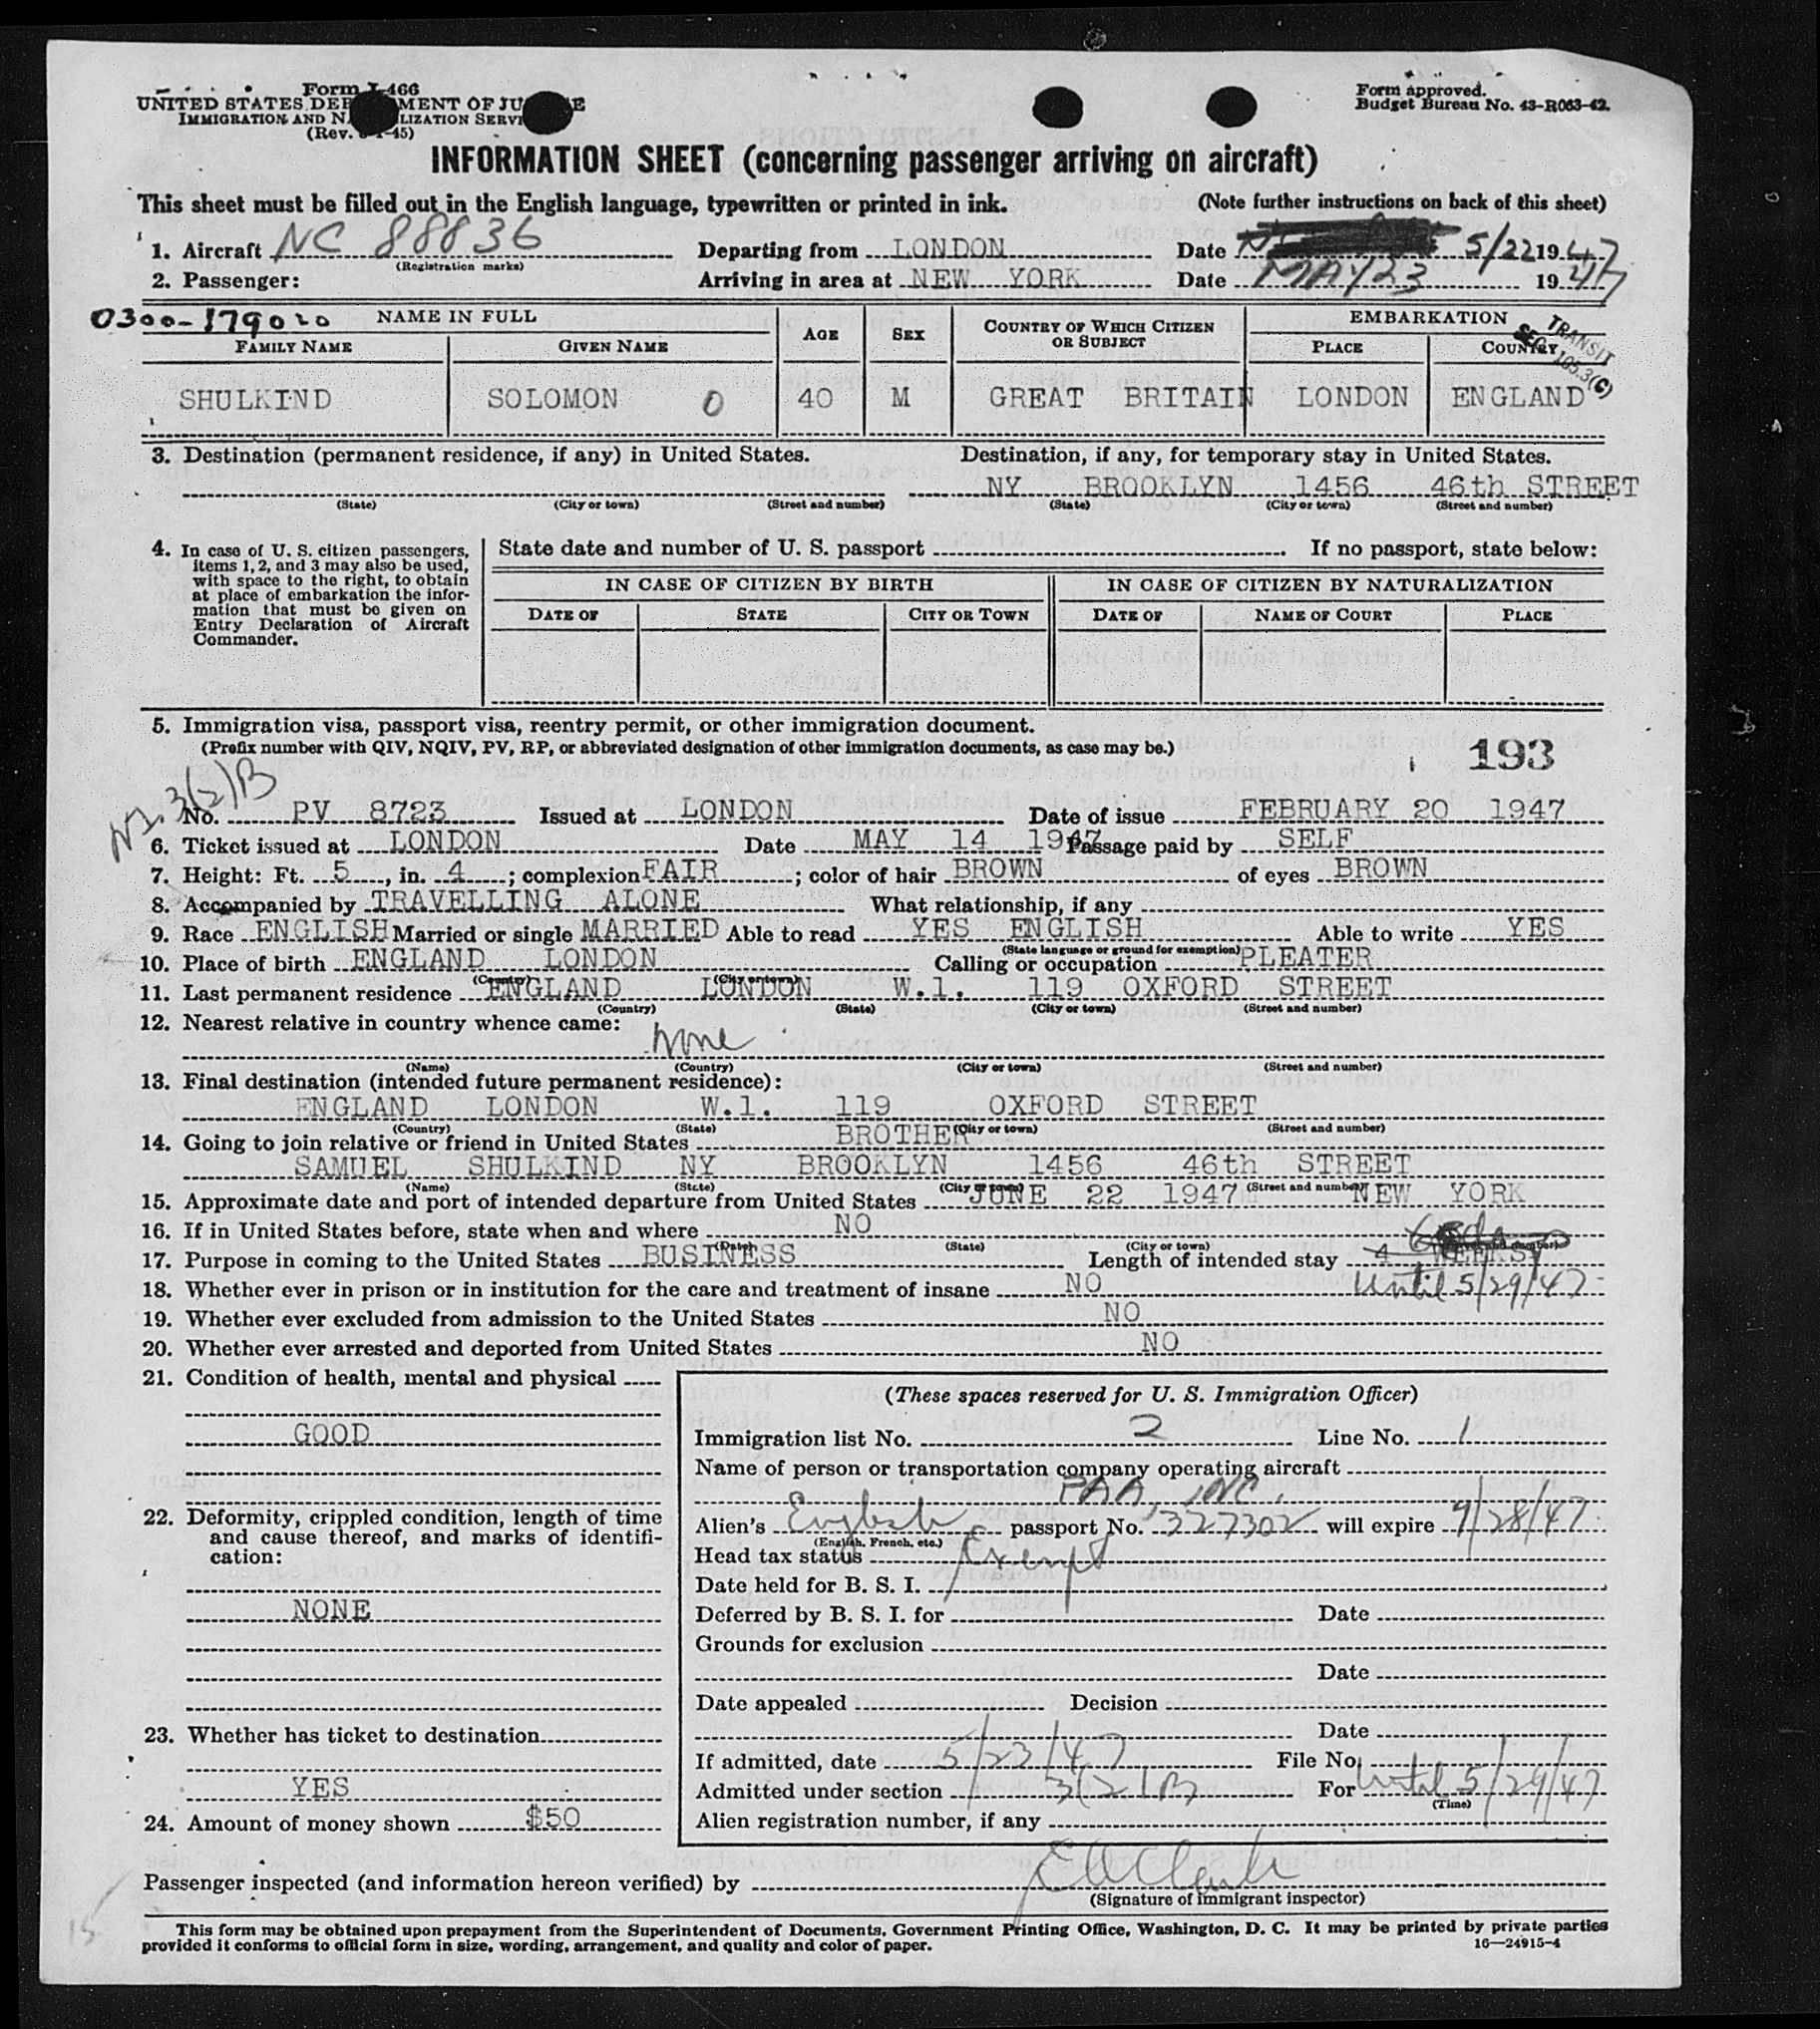 Form I-466
UNITED STATES DEPARTMENT OF JUSTICE
IMMIGRATION AND NATURALIZATION SERVICE
(Rev. -45)
Form approved.
Budget Bureau No. 43-R063-42.
INFORMATION SHEET (concerning passenger arriving on aircraft)
This sheet must be filled out in the English language, typewritten or printed in ink. (Note further instructions on back of this sheet)
1. Aircraft NC 88836 Departing from LONDON Date 5/22 1947
(Registration marks)
2. Passenger: Arriving in area at NEW YORK Date MAY 23 1947
0300-179020 NAME IN FULL AGE SEX COUNTRY OF WHICH CITIZEN OR SUBJECT EMBARKATION
FAMILY NAME GIVEN NAME PLACE COUNTRY
TRANSIT
SEC. 105.3(C)
SHULKIND SOLOMON O 40 M GREAT BRITAIN LONDON ENGLAND
3. Destination (permanent residence, if any) in United States. Destination, if any, for temporary stay in United States.
NY BROOKLYN 1456 46th STREET
(State) (City or town) (Street and number) (State) (City or town) (Street and number)
4. In case of U. S. citizen passengers, items 1, 2, and 3 may also be used, with space to the right, to obtain at place of embarkation the information that must be given on Entry Declaration of Aircraft Commander.
State date and number of U. S. passport . If no passport, state below:
IN CASE OF CITIZEN BY BIRTH IN CASE OF CITIZEN BY NATURALIZATION
DATE OF STATE CITY OR TOWN DATE OF NAME OF COURT PLACE
5. Immigration visa, passport visa, reentry permit, or other immigration document.
(Prefix number with QIV, NQIV, PV, RP, or abbreviated designation of other immigration documents, as case may be.) 193
3(2)B
No. PV 8723 Issued at LONDON Date of issue FEBRUARY 20 1947
6. Ticket issued at LONDON Date MAY 14 1947 Passage paid by SELF
7. Height: Ft. 5, in. 4; complexion FAIR; color of hair BROWN of eyes BROWN
8. Accompanied by TRAVELLING ALONE What relationship, if any
9. Race ENGLISH Married or single MARRIED Able to read YES ENGLISH Able to write YES
(State language or ground for exemption)
10. Place of birth ENGLAND LONDON Calling or occupation PLEATER
(Country) (City or town)
11. Last permanent residence ENGLAND LONDON W.1. 119 OXFORD STREET
(Country) (State) (City or town) (Street and number)
12. Nearest relative in country whence came:
None
(Name) (Country) (City or town) (Street and number)
13. Final destination (intended future permanent residence):
ENGLAND LONDON W.1. 119 OXFORD STREET
(Country) (State) (City or town) (Street and number)
14. Going to join relative or friend in United States BROTHER
SAMUEL SHULKIND NY BROOKLYN 1456 46th STREET
(Name) (State) (City or town) (Street and number)
15. Approximate date and port of intended departure from United States JUNE 22 1947 NEW YORK
16. If in United States before, state when and where NO
(Date) (State) (City or town) (Street and number)
17. Purpose in coming to the United States BUSINESS Length of intended stay 4 WEEKS
until 5/29/47
18. Whether ever in prison or in institution for the care and treatment of insane NO
19. Whether ever excluded from admission to the United States NO
20. Whether ever arrested and deported from United States NO
21. Condition of health, mental and physical
GOOD
22. Deformity, crippled condition, length of time and cause thereof, and marks of identification:
NONE
23. Whether has ticket to destination
YES
24. Amount of money shown $50
(These spaces reserved for U. S. Immigration Officer)
Immigration list No. 2 Line No. 1
Name of person or transportation company operating aircraft
PAA, INC.
Alien's English passport No. 327302 will expire 9/28/47
(English, French, etc.)
Head tax status Exempt
Date held for B. S. I.
Deferred by B. S. I. for Date
Grounds for exclusion
Date
Date appealed Decision
Date
If admitted, date 5/23/47 File No.
Admitted under section 3(2)B For until 5/29/47
(Time)
Alien registration number, if any
Passenger inspected (and information hereon verified) by
(Signature of immigrant inspector)
15
This form may be obtained upon prepayment from the Superintendent of Documents, Government Printing Office, Washington, D. C. It may be printed by private parties
provided it conforms to official form in size, wording, arrangement, and quality and color of paper. 16—24915-4